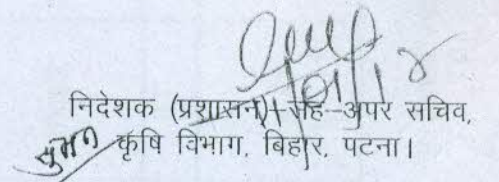 निदेशक (प्रशासन)-सह-अपर सचिव,
कृषि विभाग, बिहार, पटना।